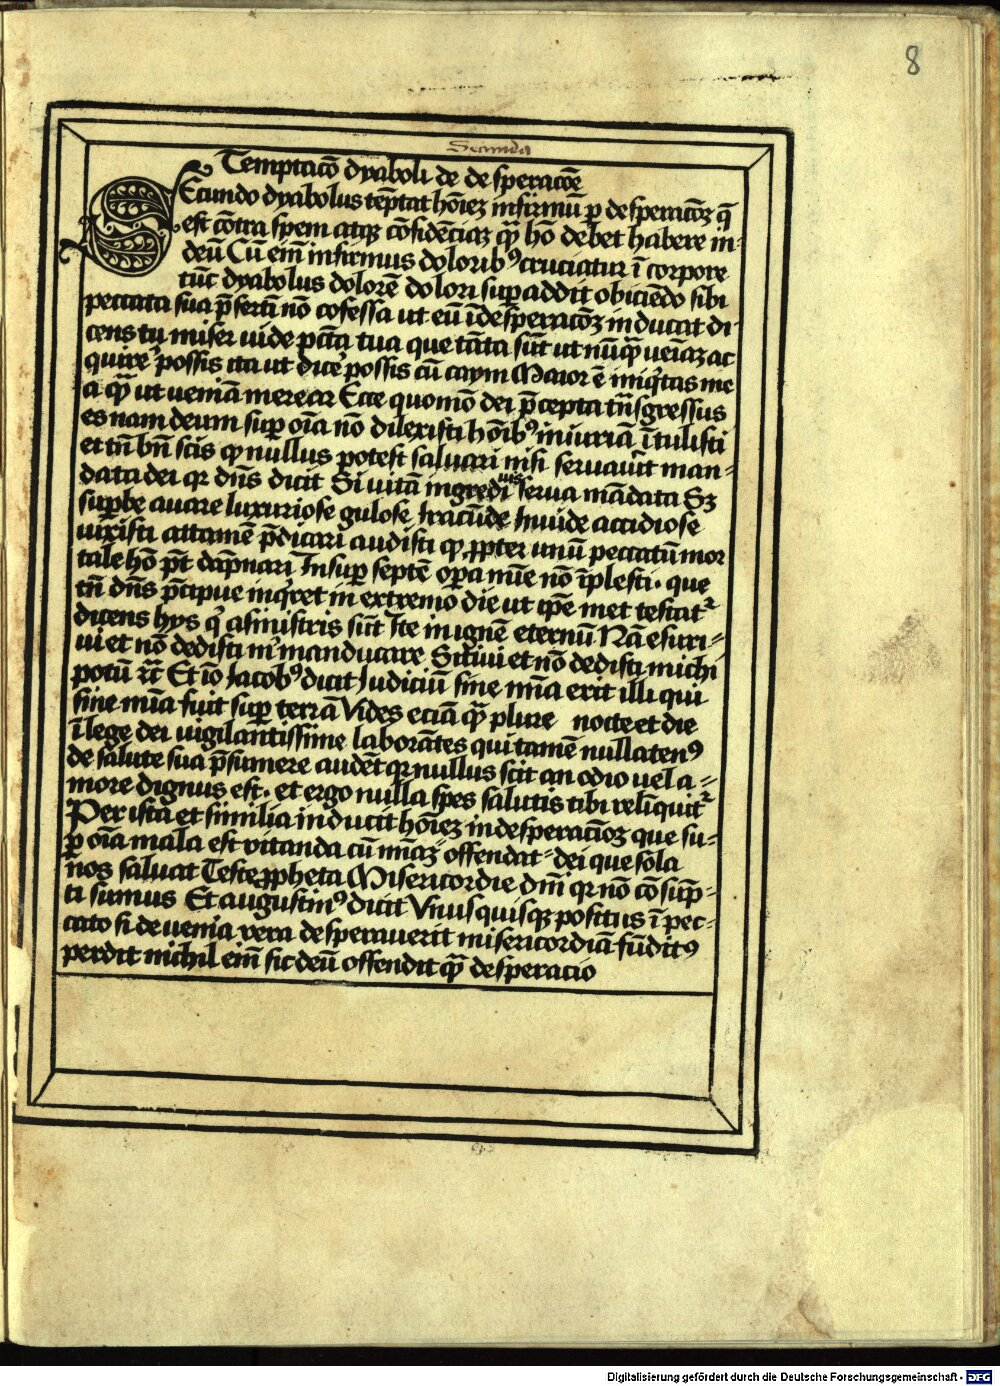 8
Secunda
Temptacō dyaboli de desperacōe
SEcundo dyabolus tēptat hōiez infirmū p desperacōz q̄
est cōtra spem atqz cōfidēciaz quā hō debet habere in-
deū Cū eīm infirmus dolorib⁹ cruciatur ī corpore
tūc dyabolus dolorē dolori superaddit obiciēdo sibi
peccata sua p̄sertī nō cōfessa ut eū ī desperacōz inducat di-
cens tu miser uide pctā tua que tāta sūt ut nūq̄ ueīaz ac
quire᷑ possis ita ut dice᷑ possis cū caym Maior ē iniq̇tas me
a q̄ ut ueniā merear Ecce quomō dei p̄cepta trāsgressus
es nam deum sup oīa nō dilexisti hōīb⁹ iniuriā ītulisti
et tn̄ bn̄ scis qꝫ nullus potest saluari nisi seruau᷑it man-
data dei qr dn̄s dicit Si vitā ingredi uis serua mādata Sz
supbe auare luxuriose gulose Iracūde Inuide accidiose
uixisti attamē p̄dicari audisti qꝫ ꝓpter unū peccatū mor
tale hō pt̄ dāpnari Insup septē opa mīe nō īplesti · que
tn̄ dn̄s p̄cipue inq̇ret in extremo die ut ipē met testat᷑
dicens hys q̇ a sinistris sūt Ite in ignē eternū Nā esuri-
ui et nō dedisti m̄ manducare Sitiui et nō dedisti michi
potū ⁊c̄ Et iō Jacob⁹ dicit Judiciū sine mīa erit illi qui
sine mīa fuit sup terrā Vides eciā q̄ plure nocte et die
ī lege dei uigilantissime laborātes qui tamē nullaten⁹
de salute sua p̄sumere audēt qr nullus scit an odio uel a-
more dignus est · et ergo nulla spes salutis tibi relīquit᷑
Per ista et similia inducit hōiez in desperacōz que su-
p oīa mala est vitanda cū mīaz offendat dei que sola
nos saluat Teste ꝓpheta Misericordie dnī qr nō cōsūp-
ti sumus Et augustin⁹ dicit Vnusquisqz positus ī pec-
cato si de uenia vera desperauerit misericordiā fūdit⁹
perdit nichil eīm sic deū offendit q̄ desperacio
Digitalisierung gefördert durch die Deutsche Forschungsgemeinschaft - DFG